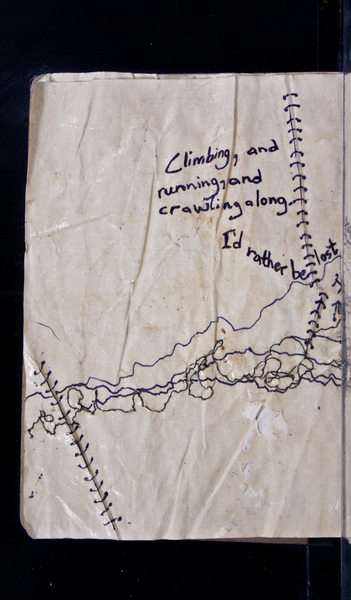 Climbing, and
running, and
crawling along.
I'd rather be lost